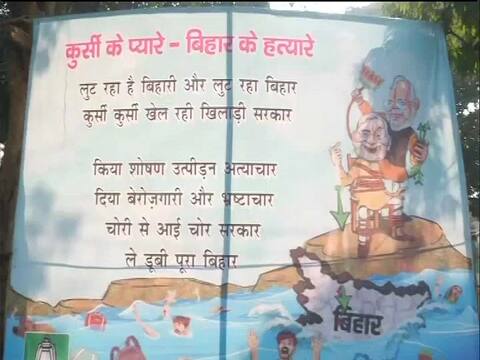 कुर्सी के प्यारे - बिहार के हत्यारे
लुट रहा है बिहारी और लुट रहा बिहार
कुर्सी कुर्सी खेल रही खिलाड़ी सरकार
किया शोषण उत्पीड़न अत्याचार
दिया बेरोज़गारी और भ्रष्टाचार
चोरी से आई चोर सरकार
ले डूबी पूरा बिहार
बिहार